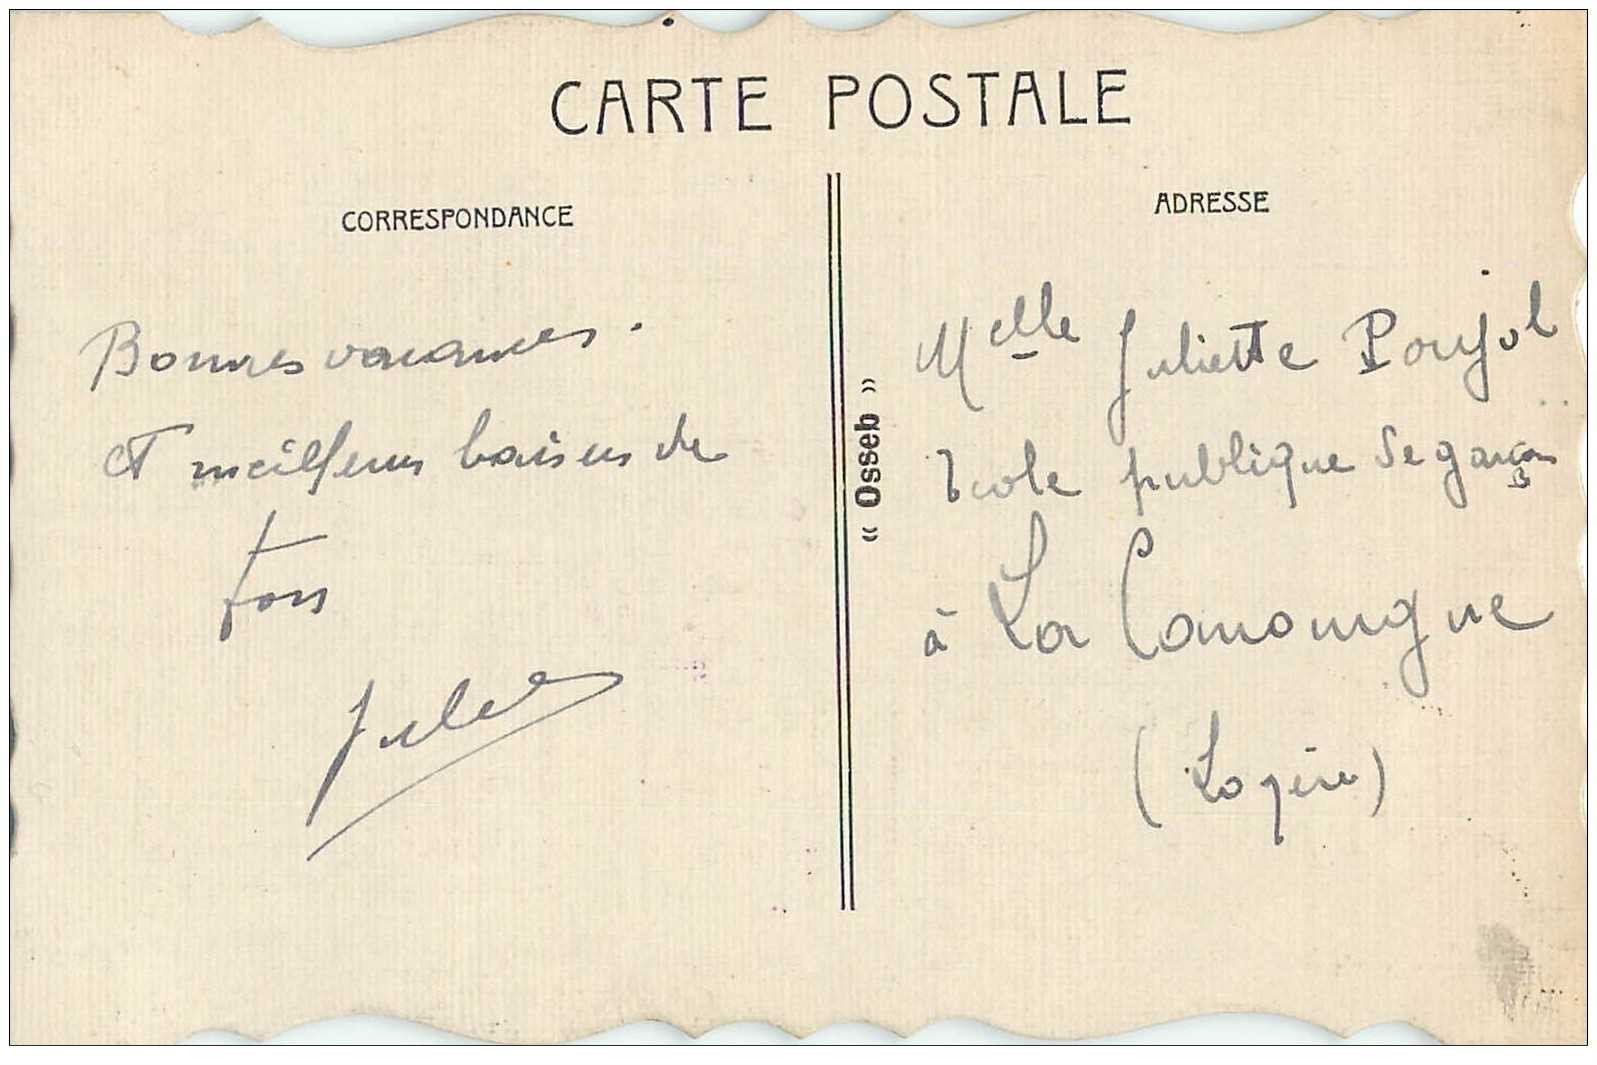 CARTE POSTALE
CORRESPONDANCE
Bonnes vacances.
et meilleurs baisers de
tous
Jules
« Osseb »
ADRESSE
Melle Juliette Poujol
Ecole publique de garçons
à La Canourgue
(Lozère)